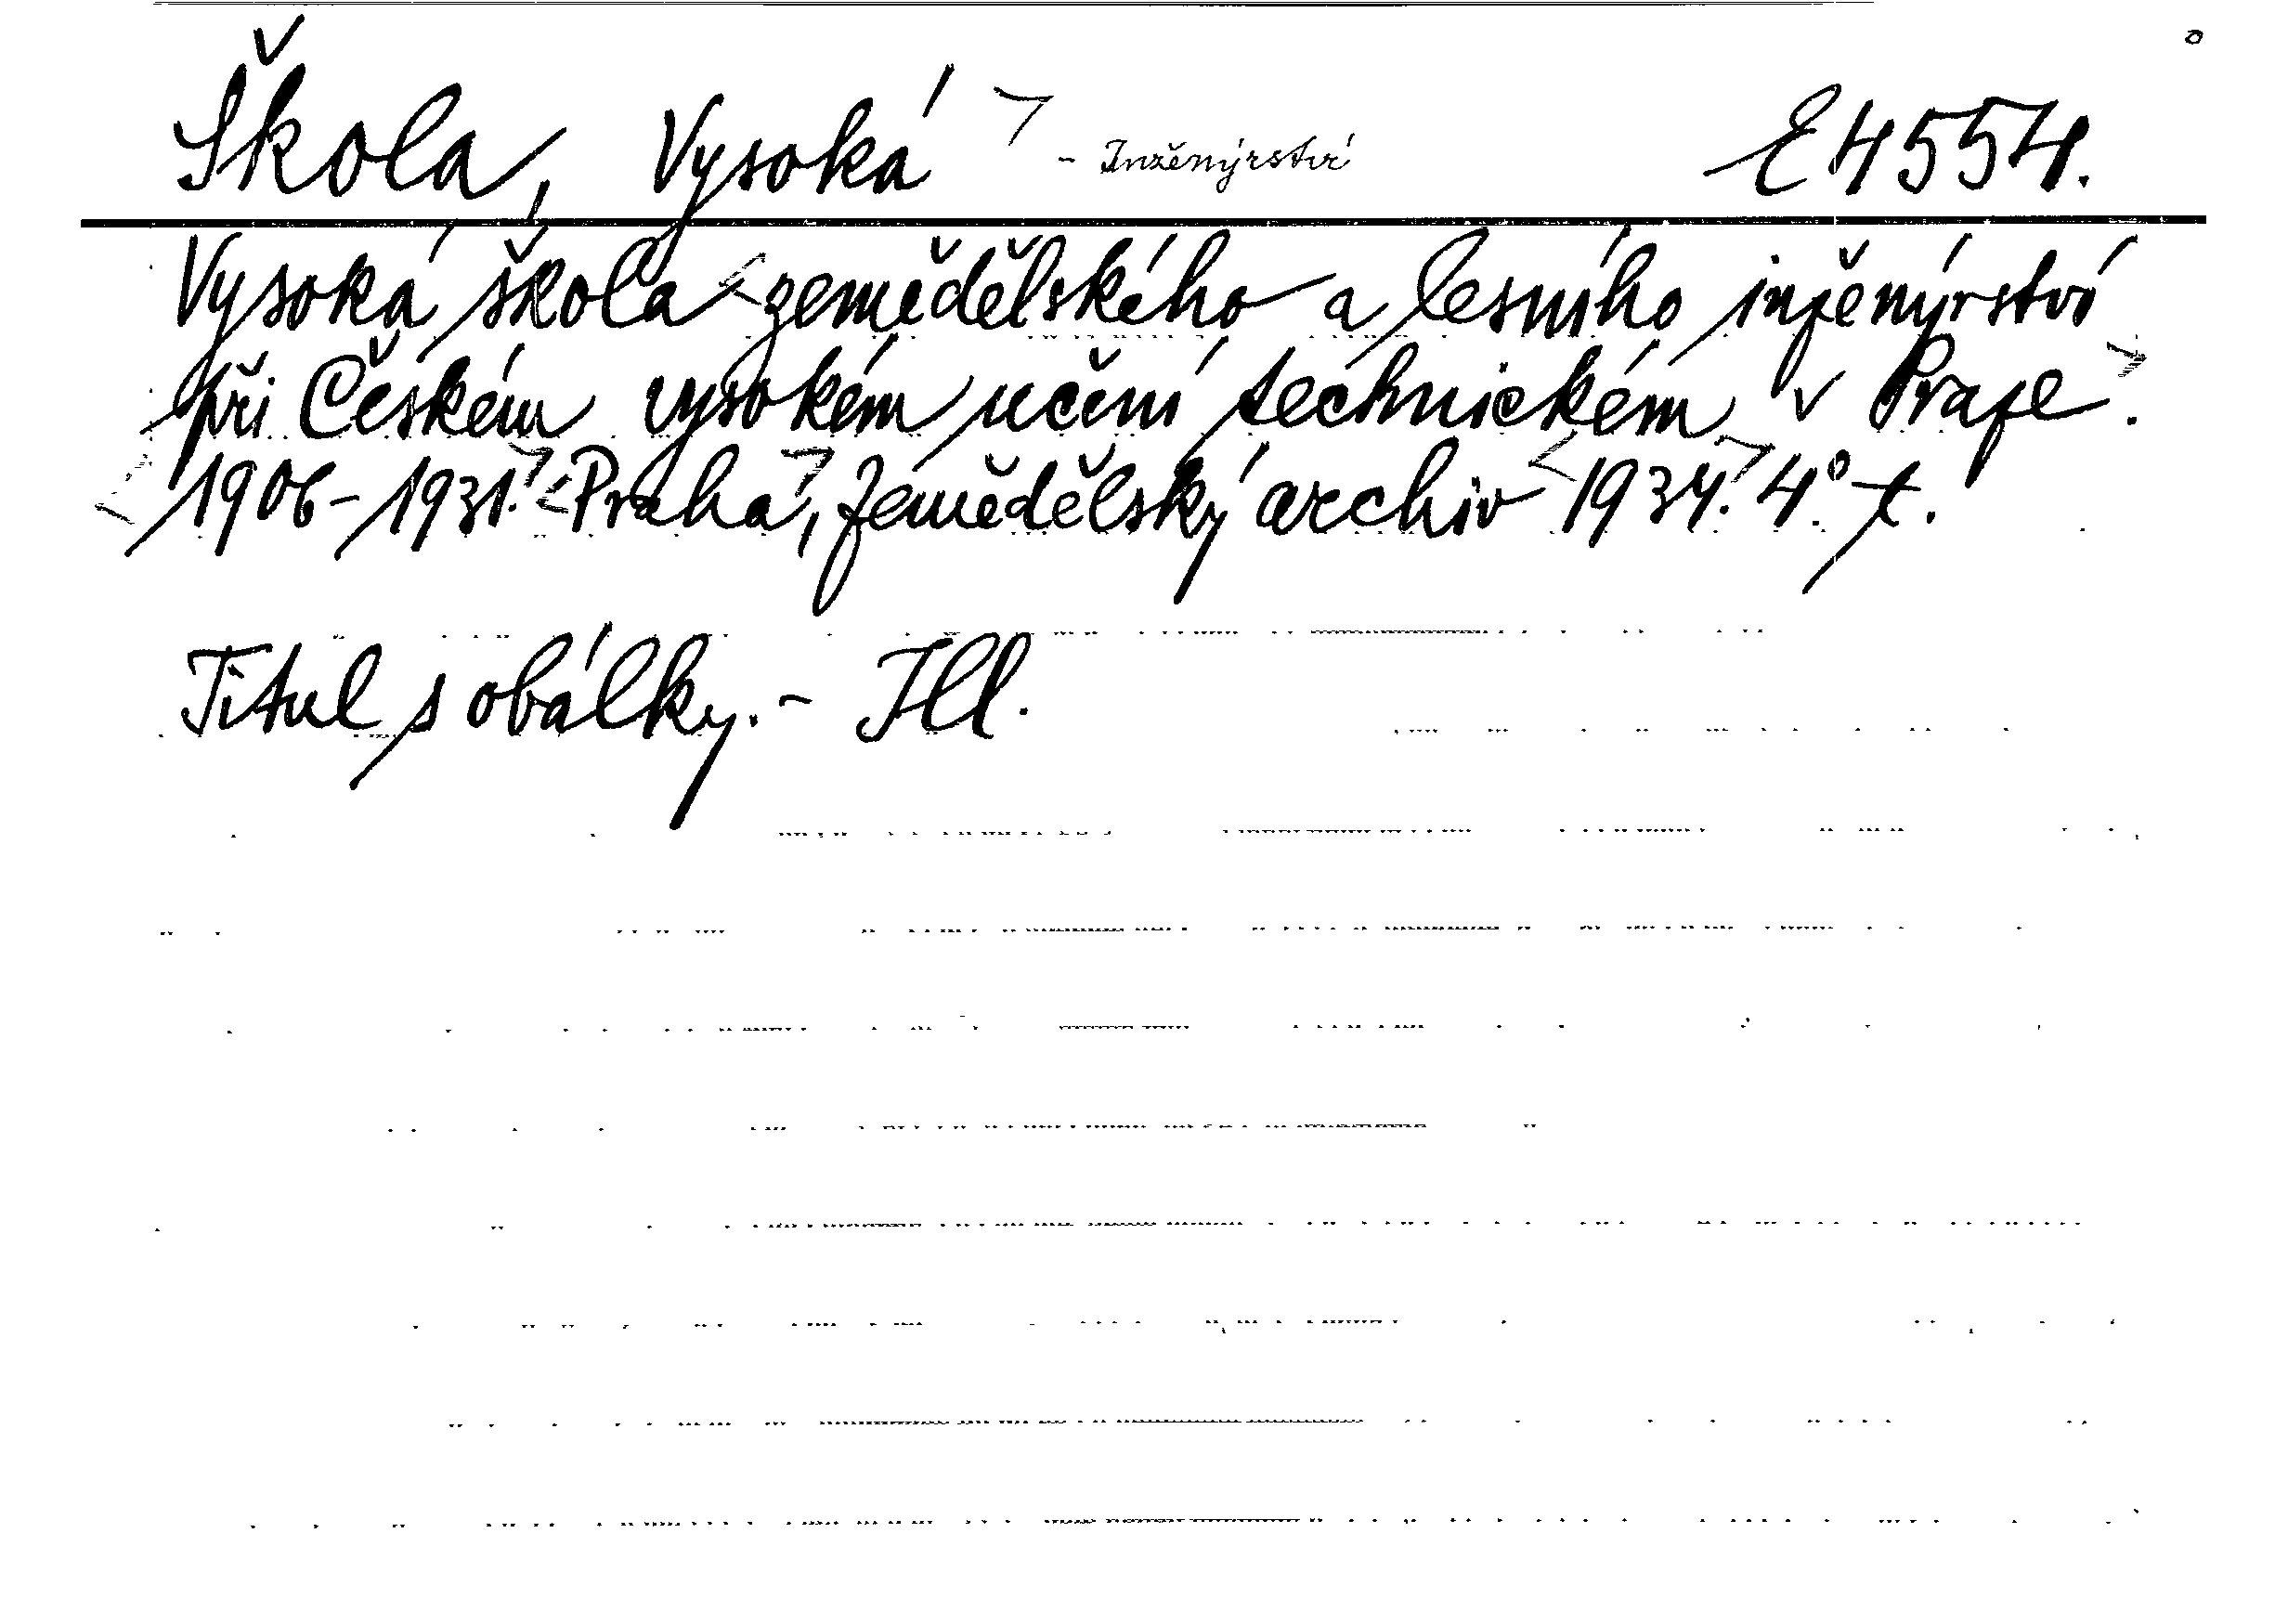 Škola, Vysoká > - Inženýrství E 4554.
Vysoká škola <zemědělského a lesního inženýrství
při Českém vysokém učení technickém v Praze>.
<1906-1931.> <Praha>, Zemědělský archiv <1934.> 4°. t.
Titul s obálky. - Ill.